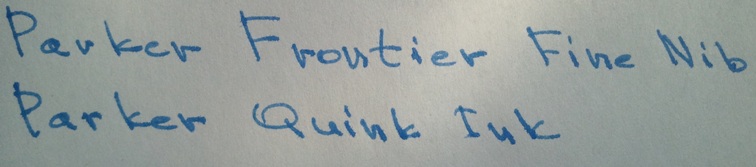 Parker Frontier Fine Nib
Parker Quink Ink